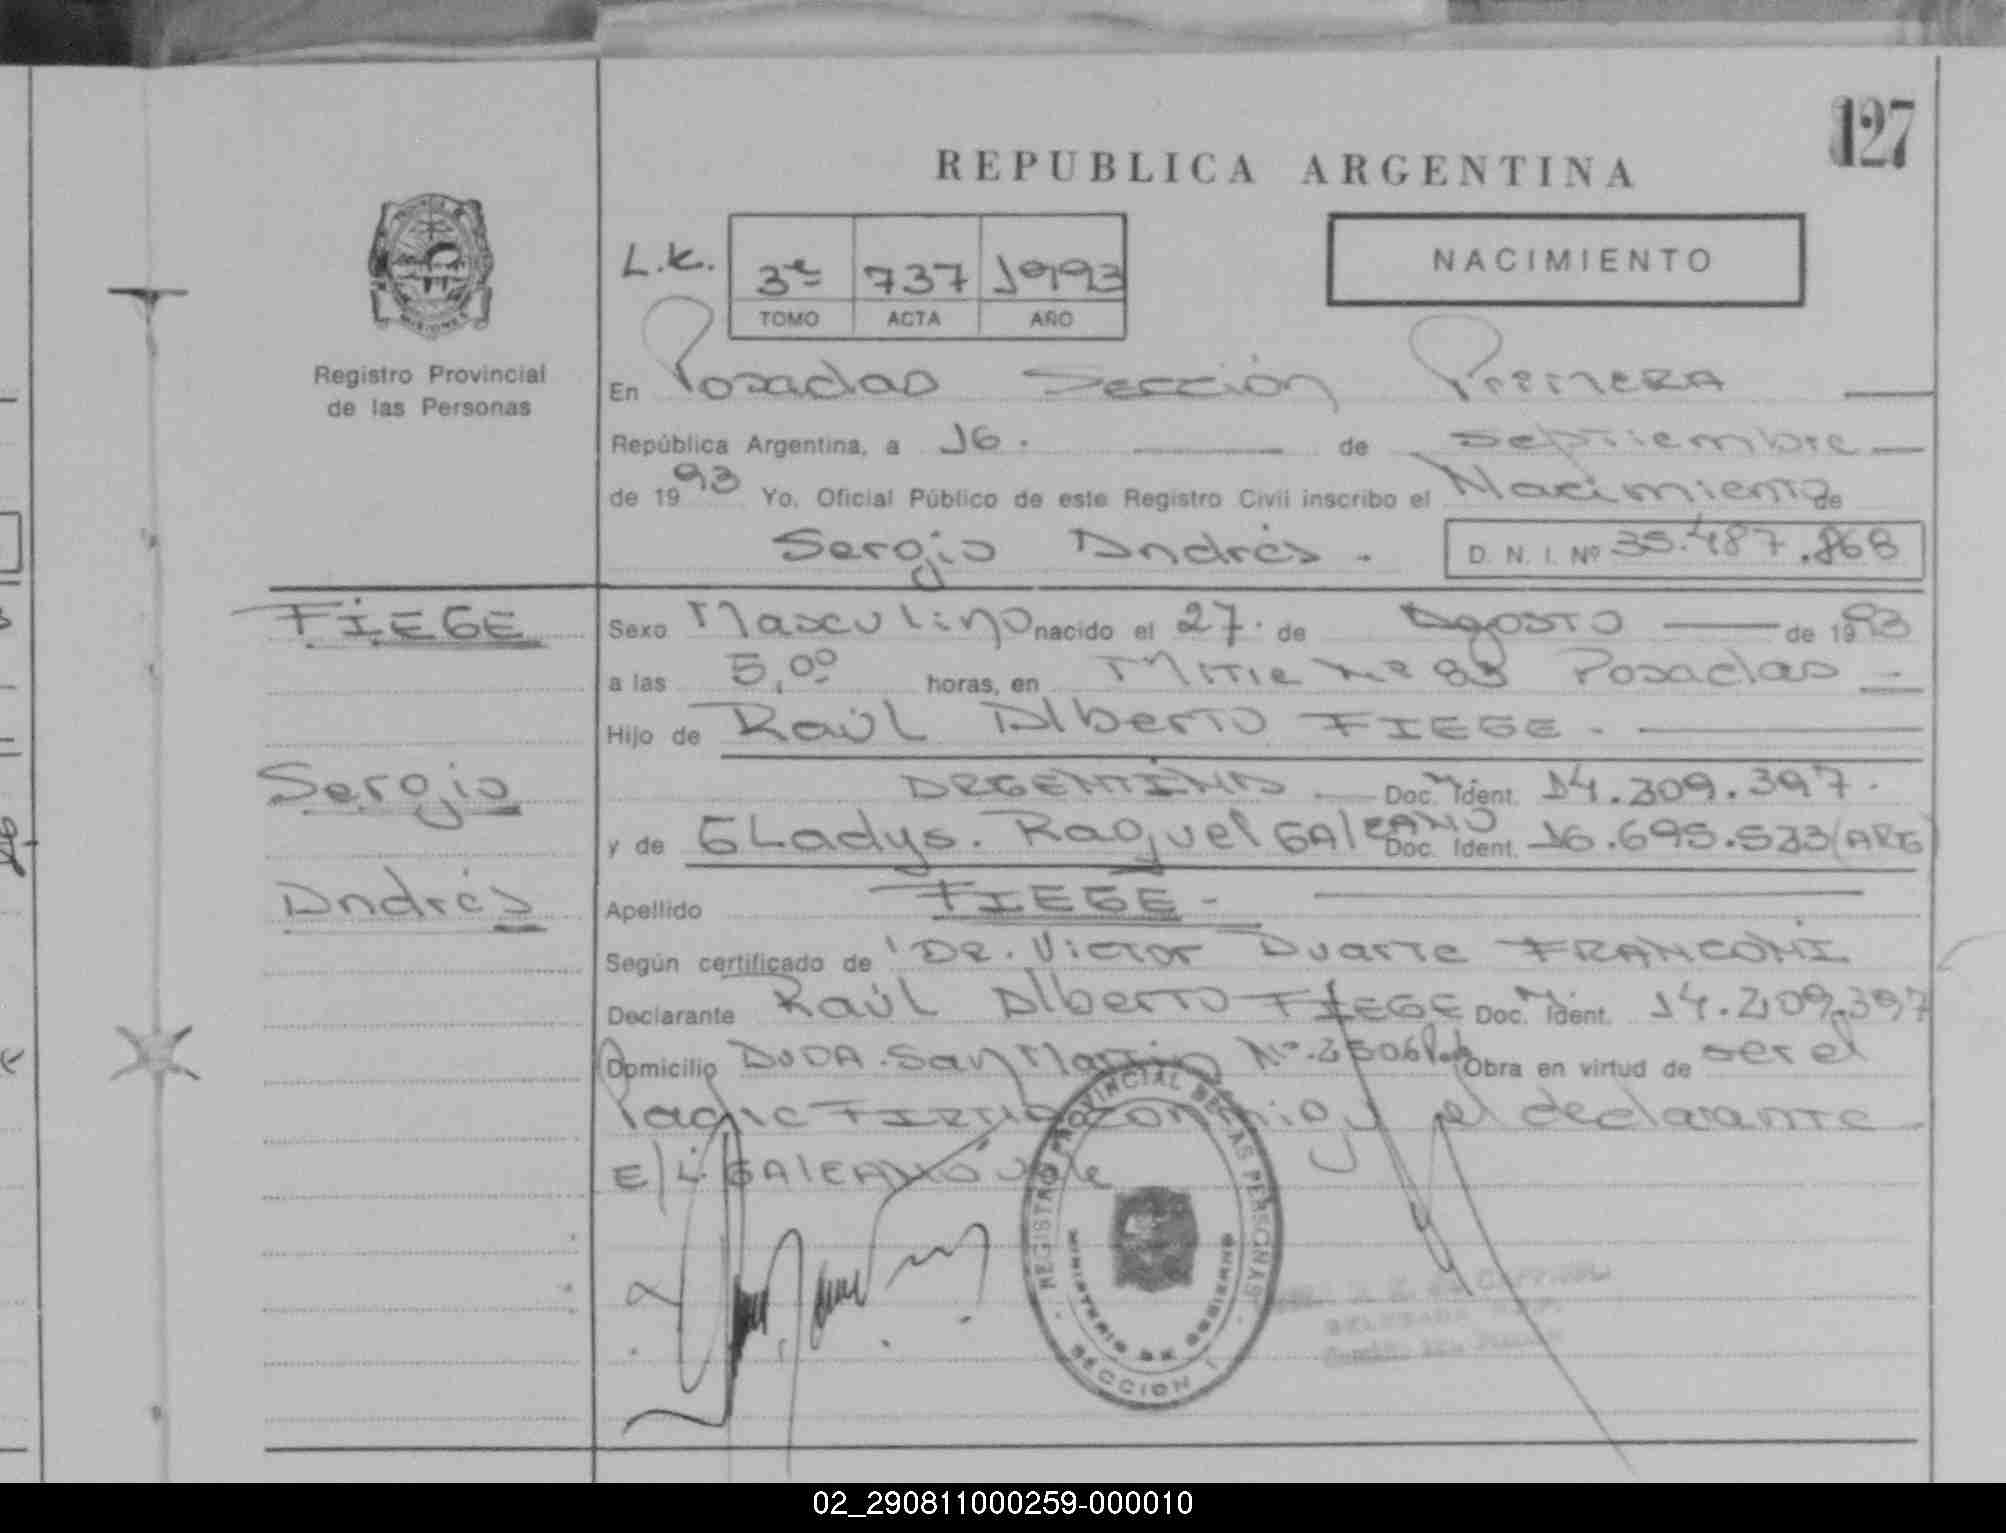 127
REPUBLICA ARGENTINA
L.K. 3º 737 1993
TOMO ACTA AÑO
NACIMIENTO
MISIONES
Registro Provincial
de las Personas
En Posadas Sección Primera
República Argentina, a 16. de Septiembre
de 1993 Yo, Oficial Público de este Registro Civil inscribo el Nacimiento de
Sergio Andrés. D. N. I. Nº 35.487.868
FIEGE
Sexo Masculino nacido el 27. de Agosto de 1993
a las 5,00 horas, en Mitre Nº 83 Posadas
Hijo de Raúl Alberto FIEGE.
Sergio
ARGENTINO Doc. Ident. 14.209.397.
y de GLadys. Raquel GAlEANO Doc. Ident. 16.695.523 (ARG)
Andrés
Apellido FIEGE -
Según certificado de DR. Victor Duarte FRANCONI
Declarante Raúl Alberto FIEGE Doc. Ident. 14.209.397
Domicilio San Martín Nº. 2506 Obra en virtud de ser el
Padre FIRMA conmigo el declarante
E/L GAlEANO Vale
REGISTRO PROVINCIAL DE LAS PERSONAS
MINISTERIO DE GOBIERNO
SECCION 1
02_290811000259-000010